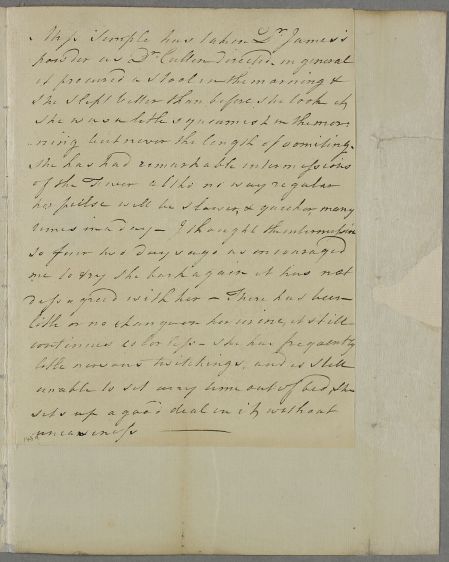 Miss Semple has taken Dr. James's
powder as Dr Cullen directed in general
it procured a stool in the morning &
she slept better than before she took it,
she was a little squeamish in the mor=
=ning but never the length of vomiting.
She has had remarkable intermissions
of the Fever altho no way regular
her pulse will be slower & quicker many
times in a day - I thought the intermission
so four two days ago as encouraged
me to try the bark again it has not
dessagreed with her - There has been
little or no change on her urine, it still
continues colorless - she has frequently
little nervous twitchings, and is still
unable to sit any time out of bed, she
sits up a good deal in it, without
uneasiness